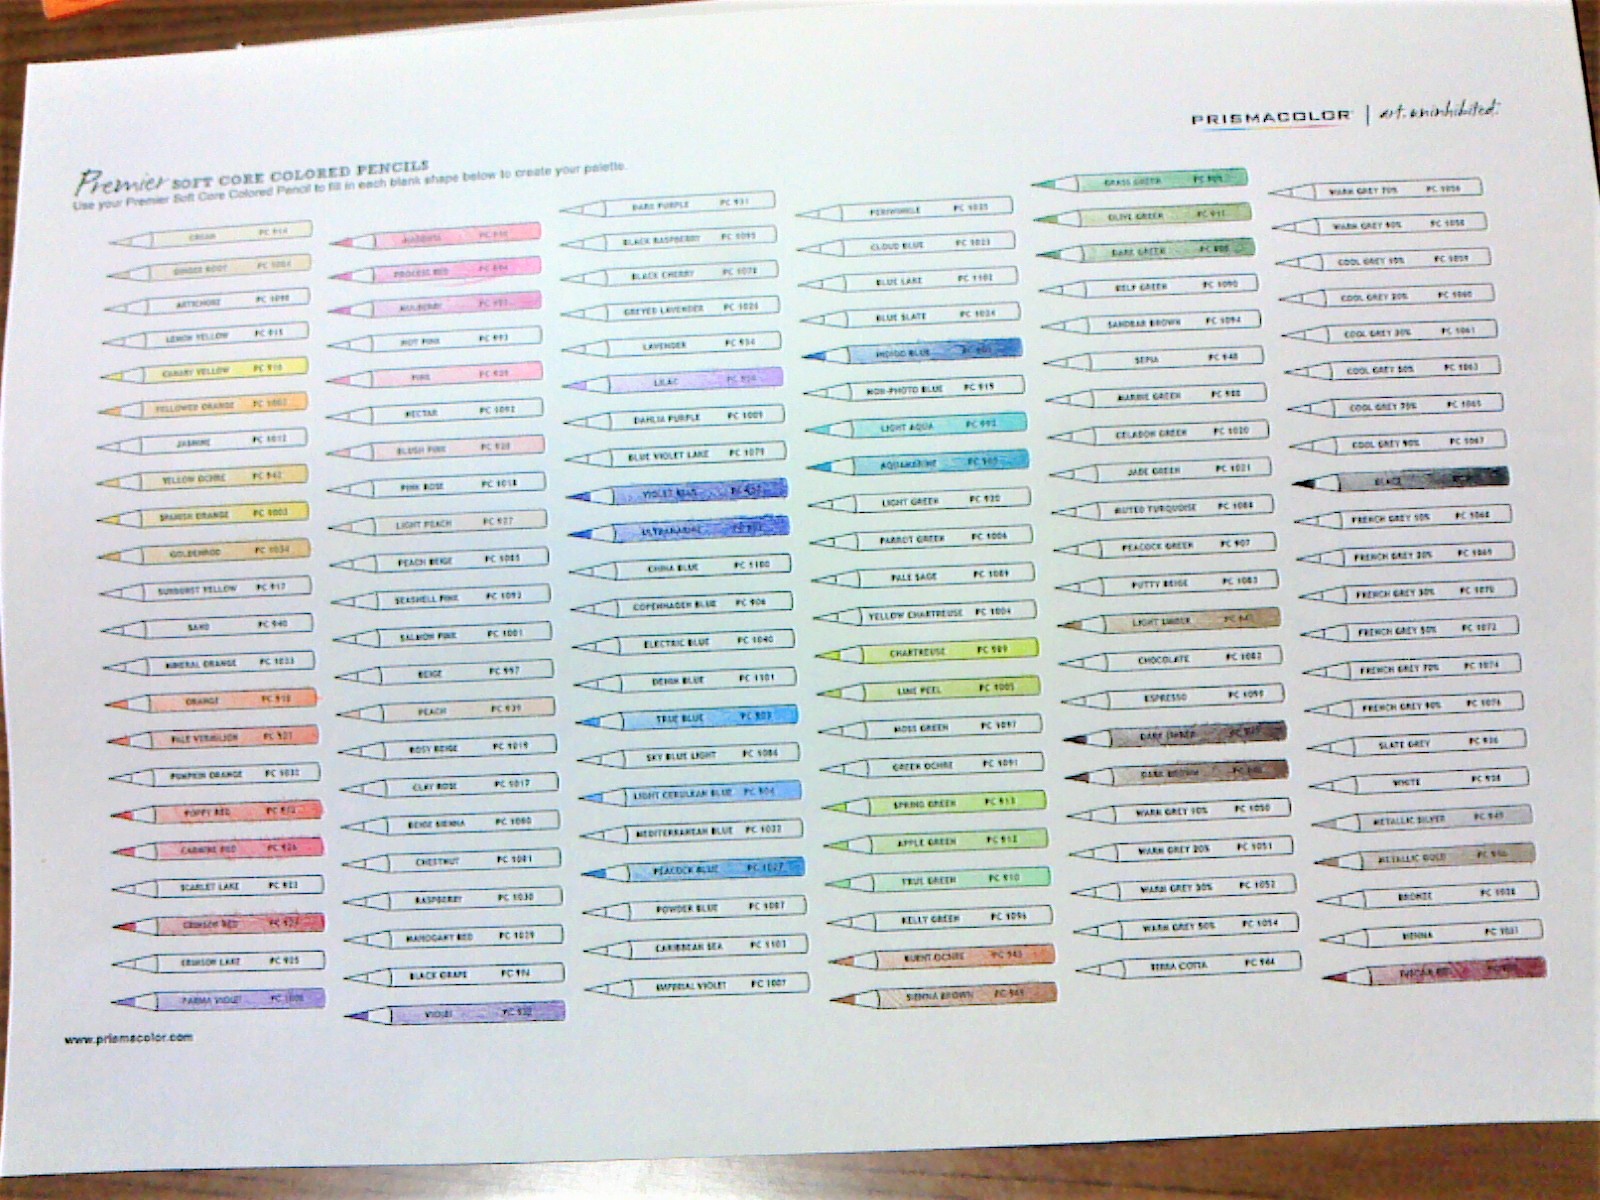 PRISMACOLOR | art. uninhibited.
Premier SOFT CORE COLORED PENCILS
Use your Premier Soft Core Colored Pencil to fill in each blank shape below to create your palette.
CREAM PC 914
GINGER ROOT PC 1084
ARTICHOKE PC 1098
LEMON YELLOW PC 915
CANARY YELLOW PC 916
YELLOWED ORANGE PC 1002
JASMINE PC 1012
YELLOW OCHRE PC 942
SPANISH ORANGE PC 1003
GOLDENROD PC 1034
SUNBURST YELLOW PC 917
SAND PC 940
MINERAL ORANGE PC 1033
ORANGE PC 918
PALE VERMILION PC 921
PUMPKIN ORANGE PC 1032
POPPY RED PC 922
CARMINE RED PC 926
SCARLET LAKE PC 923
CRIMSON RED PC 924
CRIMSON LAKE PC 925
PARMA VIOLET PC 1008
MAGENTA PC 930
PROCESS RED PC 994
MULBERRY PC 995
HOT PINK PC 993
PINK PC 929
NECTAR PC 1092
BLUSH PINK PC 928
PINK ROSE PC 1018
LIGHT PEACH PC 927
PEACH BEIGE PC 1085
SEASHELL PINK PC 1093
SALMON PINK PC 1001
BEIGE PC 997
PEACH PC 939
ROSY BEIGE PC 1019
CLAY ROSE PC 1017
BEIGE SIENNA PC 1080
CHESTNUT PC 1081
RASPBERRY PC 1030
MAHOGANY RED PC 1029
BLACK GRAPE PC 996
VIOLET PC 932
DARK PURPLE PC 931
BLACK RASPBERRY PC 1095
BLACK CHERRY PC 1078
GREYED LAVENDER PC 1026
LAVENDER PC 934
LILAC PC 956
DAHLIA PURPLE PC 1009
BLUE VIOLET LAKE PC 1079
VIOLET BLUE PC 933
ULTRAMARINE PC 902
CHINA BLUE PC 1100
COPENHAGEN BLUE PC 906
ELECTRIC BLUE PC 1040
DENIM BLUE PC 1101
TRUE BLUE PC 903
SKY BLUE LIGHT PC 1086
LIGHT CERULEAN BLUE PC 904
MEDITERRANEAN BLUE PC 1022
PEACOCK BLUE PC 1027
POWDER BLUE PC 1087
CARIBBEAN SEA PC 1103
IMPERIAL VIOLET PC 1007
PERIWINKLE PC 1025
CLOUD BLUE PC 1023
BLUE LAKE PC 1102
BLUE SLATE PC 1024
INDIGO BLUE PC 901
NON-PHOTO BLUE PC 919
LIGHT AQUA PC 992
AQUAMARINE PC 905
LIGHT GREEN PC 920
PARROT GREEN PC 1006
PALE SAGE PC 1089
YELLOW CHARTREUSE PC 1004
CHARTREUSE PC 989
LIME PEEL PC 1005
MOSS GREEN PC 1097
GREEN OCHRE PC 1091
SPRING GREEN PC 913
APPLE GREEN PC 912
TRUE GREEN PC 910
KELLY GREEN PC 1096
BURNT OCHRE PC 943
SIENNA BROWN PC 945
GRASS GREEN PC 909
OLIVE GREEN PC 911
DARK GREEN PC 908
KELP GREEN PC 1090
SANDBAR BROWN PC 1094
SEPIA PC 948
MARINE GREEN PC 988
CELADON GREEN PC 1020
JADE GREEN PC 1021
MUTED TURQUOISE PC 1088
PEACOCK GREEN PC 907
PUTTY BEIGE PC 1083
LIGHT UMBER PC 941
CHOCOLATE PC 1082
ESPRESSO PC 1099
DARK UMBER PC 947
DARK BROWN PC 946
WARM GREY 10% PC 1050
WARM GREY 20% PC 1051
WARM GREY 30% PC 1052
WARM GREY 50% PC 1054
TERRA COTTA PC 944
WARM GREY 70% PC 1056
WARM GREY 90% PC 1058
COOL GREY 10% PC 1059
COOL GREY 20% PC 1060
COOL GREY 30% PC 1061
COOL GREY 50% PC 1063
COOL GREY 70% PC 1065
COOL GREY 90% PC 1067
BLACK
FRENCH GREY 10% PC 1068
FRENCH GREY 20% PC 1069
FRENCH GREY 30% PC 1070
FRENCH GREY 50% PC 1072
FRENCH GREY 70% PC 1074
FRENCH GREY 90% PC 1076
SLATE GREY PC 936
WHITE PC 938
METALLIC SILVER PC 949
METALLIC GOLD PC 950
BRONZE PC 1028
HENNA PC 1031
TUSCAN RED
www.prismacolor.com